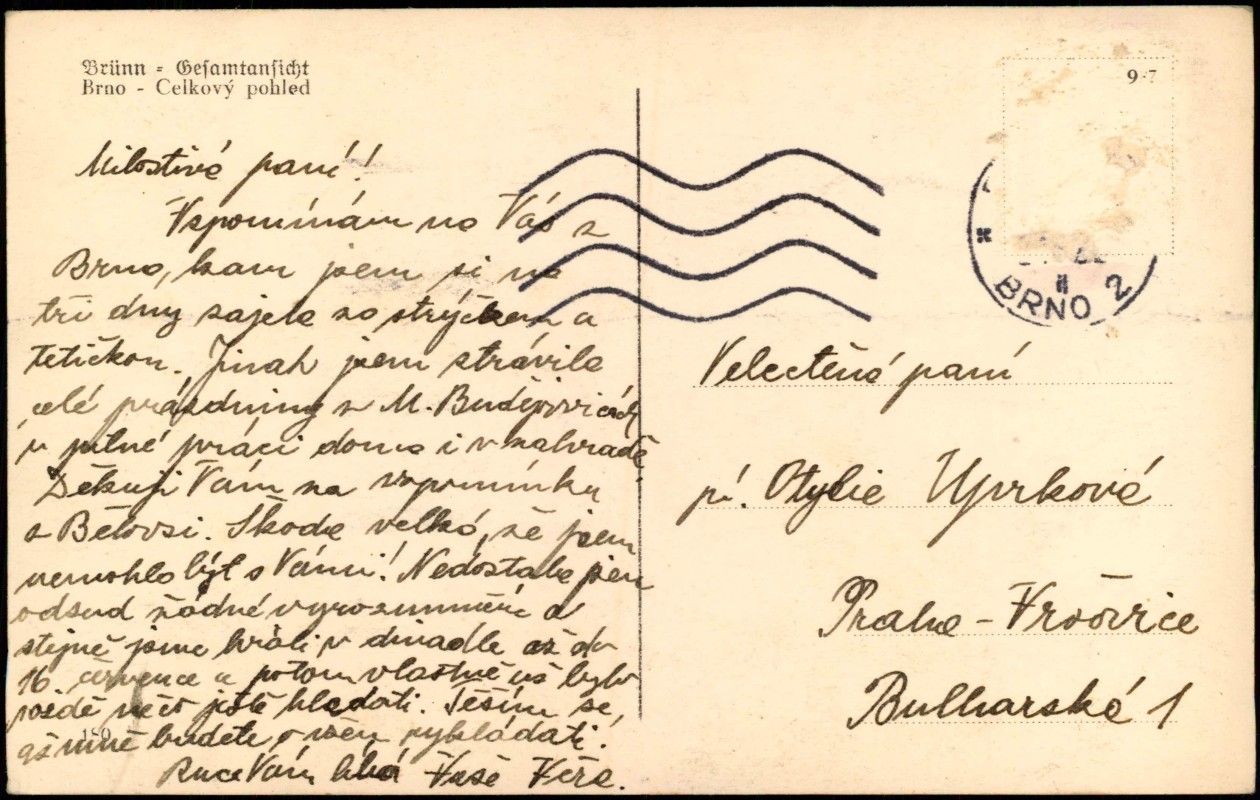 Brünn - Gesamtansicht
Brno - Celkový pohled
9-7
BRNO 2
Milostivá paní!
Vzpomínám na Vás z
Brna, kam jsem si na
tři dny zajela se strýčkem a
tetičkou. Jinak jsem strávila
celé prázdniny v M. Budějovicích
v pilné práci doma i v zahradě.
Děkuji Vám za vzpomínku
z Bělovsi. Škoda velká, že jsem
nemohla být s Vámi! Nedostala jsem
odsud žádné vyrozumnění a
stejně jsme hráli v divadle až do
16 července a potom vlastně už bylo
pozdě něco ještě hledati. Těším se,
až mně budete o všem vykládati.
Ruce Vám líbá Vaše Věra.
180
Velectěná paní
pí. Otylie Uprková
Praha - Vršovice
Bulharská 1